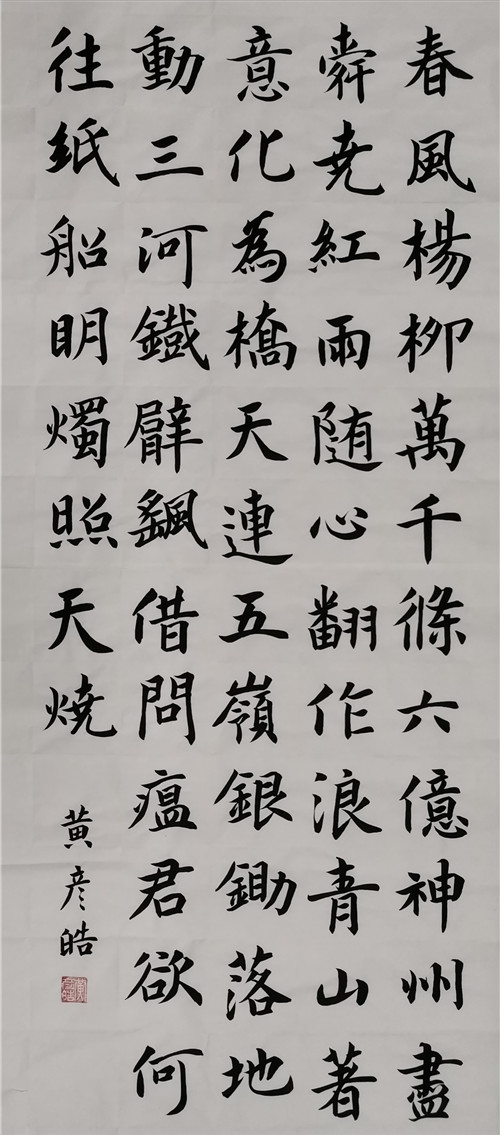 春風楊柳萬千條六億神州盡
舜尭紅雨随心翻作浪青山著
意化為橋天連五嶺銀鋤落地
動三河鐵臂飖借問瘟君欲何
往紙船明燭照天燒
黄彦皓